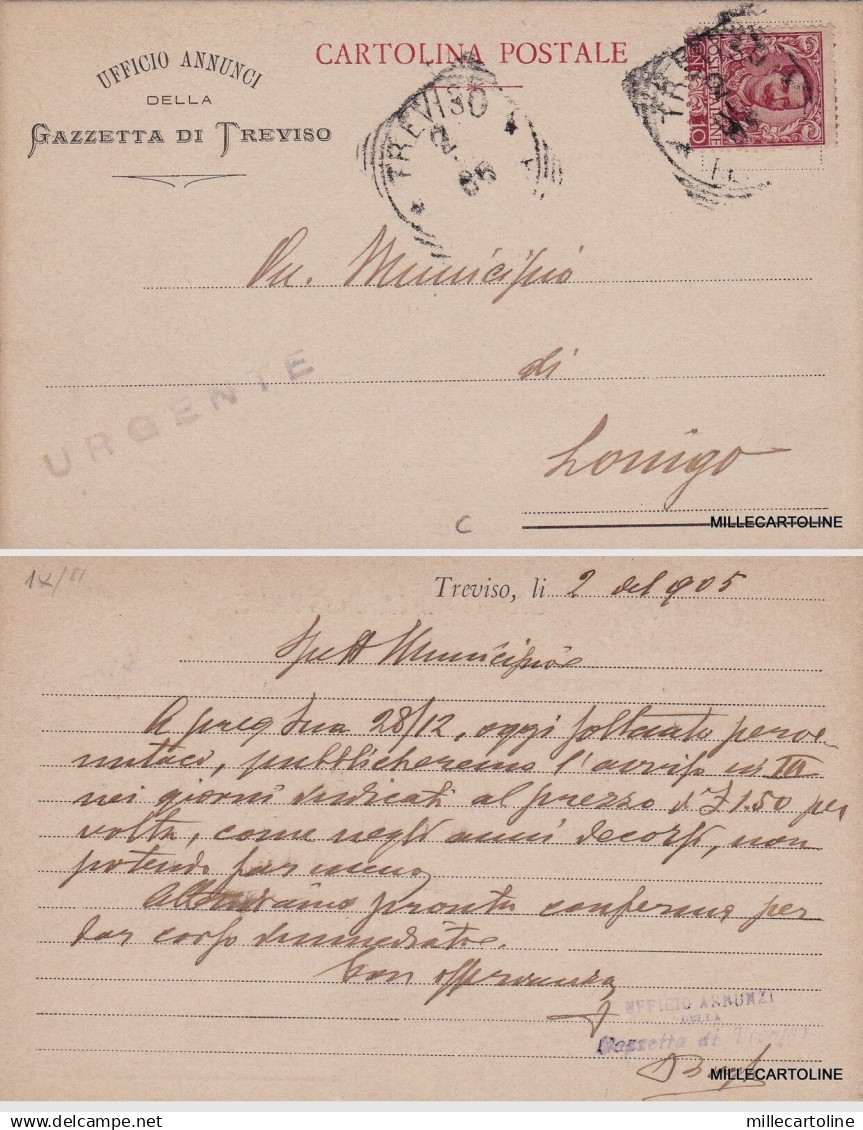 UFFICIO ANNUNCI
DELLA
GAZZETTA DI TREVISO
CARTOLINA POSTALE
TREVISO
2
05
POSTE
CENT. 10
On. Municipio
di
Lonigo
URGENTE
C
MILLECARTOLINE
Treviso, li 2 del 905
Spett Municipio
A preg Sua 28/12, oggi soltanto perve-
nutaci, pubblicheremo l'avviso in III
nei giorni indicati al prezzo di £ 1.50 per
volta, come negli anni decorsi, non
potendo far meno
Attendiamo pronta conferma per
dar corso immediato.
Con osservanza
UFFICIO ANNUNZI
DELLA
Gazzetta di Treviso
MILLECARTOLINE
delcampe.net
millecartoline